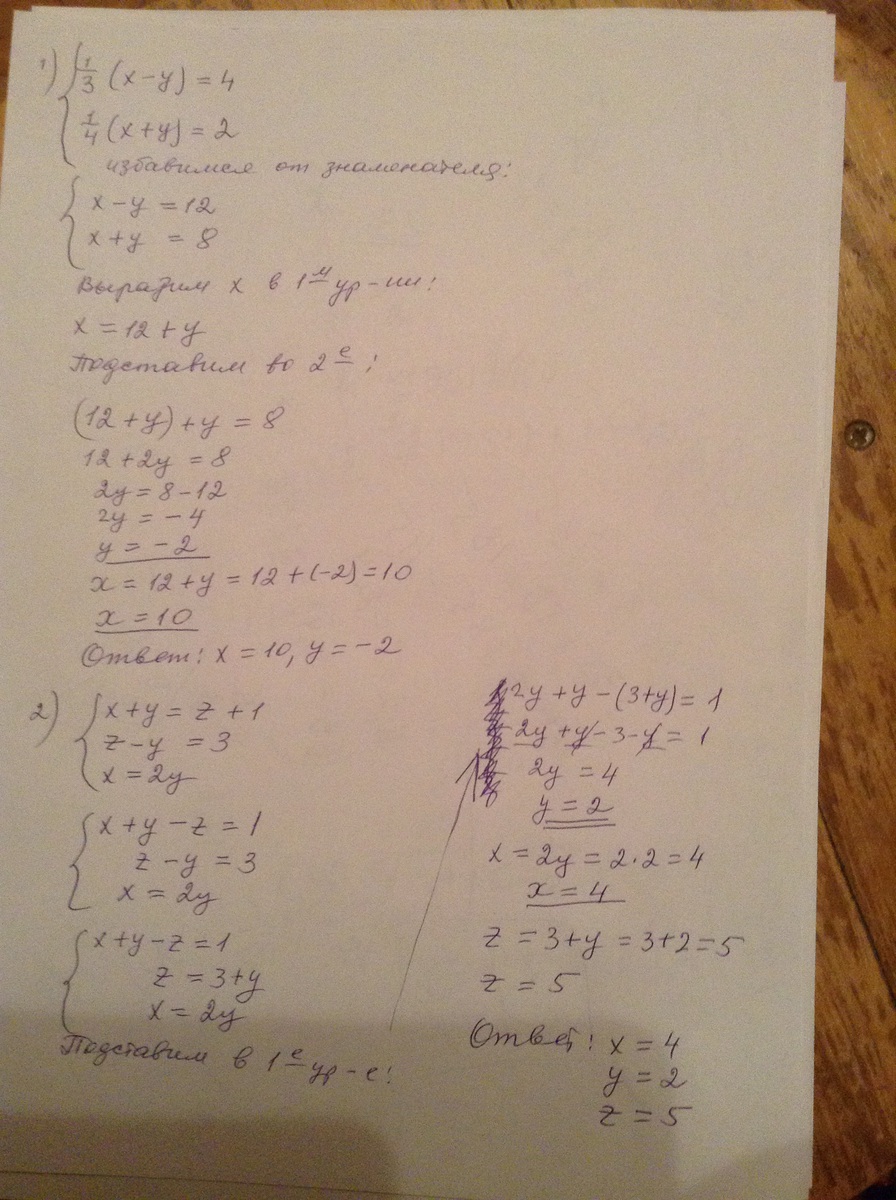 1) { 1/3 (x-y) = 4
1/4 (x+y) = 2
избавимся от знаменателя:
{ x-y = 12
x+y = 8
Выразим x в 1м ур-ии:
x = 12 + y
Подставим во 2е:
(12 + y) + y = 8
12 + 2y = 8
2y = 8 - 12
2y = - 4
y = - 2
x = 12 + y = 12 + (-2) = 10
x = 10
Ответ: x = 10, y = - 2
2) { x + y = z + 1
z - y = 3
x = 2y
{ x + y - z = 1
z - y = 3
x = 2y
{ x + y - z = 1
z = 3 + y
x = 2y
Подставим в 1е ур-е:
2y + y - (3+y) = 1
2y + y - 3 - y = 1
2y = 4
y = 2
x = 2y = 2·2 = 4
x = 4
z = 3 + y = 3 + 2 = 5
z = 5
Ответ: x = 4
y = 2
z = 5